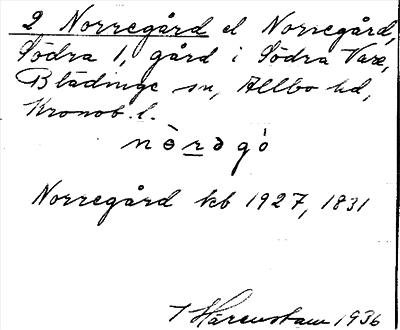 2 Norregård el Norregård,
Södra 1, gård i Södra Vare,
Blädinge sn, Allbo hd,
Kronob. l.
nò̱rəgó
Norregård kb 1927, 1831
Härenstam 1936